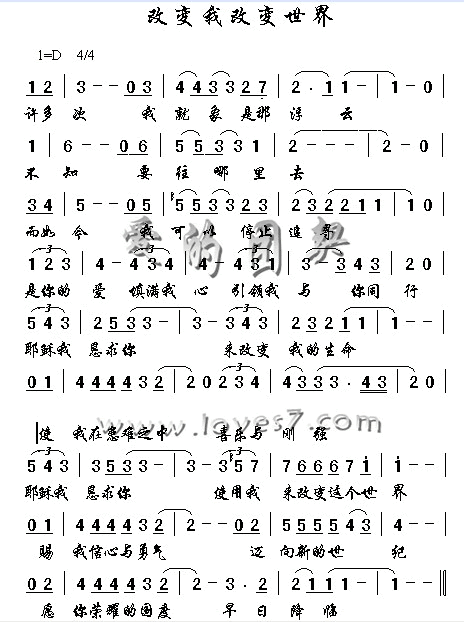 改变我改变世界
1=D 4/4
1 2 | 3 - - 0 3 | 4 4 3 3 2 7 | 2 · 1 1 - | 1 - 0
许多次 我就象是那浮云
1 | 6 - - 0 6 | 5 5 3 3 1 | 2 - - - | 2 - -
不知 要往哪里去
3 4 | 5 - - 0 5 | 5 5 3 3 2 3 | 2 3 2 2 1 1 | 1 - 0
而如今 我可以停止追寻
1 2 3 | 4 - 4 3 4 | 4 - 4 3 4 | 5 - 1 2 3 | 3 - 3 4 3 | 2 0
是你的爱 填满我心 引领我与 你同行
5 4 3 | 2 5 3 3 - | 3 - 0 3 3 3 | 2 3 2 1 1 | 1 - -
耶稣我恳求你 来改变我的生命
0 1 | 4 4 4 4 3 2 | 2 0 2 3 4 | 4 4 3 3 · 4 3 | 2 0
使 我在患难之中 喜乐与刚强
5 4 3 | 2 5 3 3 - | 3 - 3 5 3 | 7 6 6 6 7 1 | 1 - -
耶稣我恳求你 使用我来改变这个世界
0 1 | 4 4 4 4 3 2 | 2 - - 0 5 | 5 5 5 5 4 3 | 2 - -
赐 我信心与勇气 迈向新的世纪
0 2 | 4 4 4 4 3 2 | 2 - 3 · 2 | 2 · 1 1 1 - | 1 - - 0
愿 你荣耀的国度 早日降临
www.loves7.com